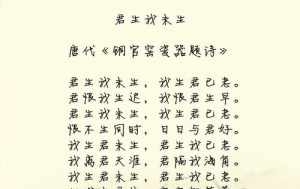 君生我未生
唐代《铜官窑瓷器题诗》
君生我未生，我生君已老。
君恨我生迟，我恨君生早。
君生我未生，我生君已老。
恨不生同时，日日与君好。
我生君未生，君生我已老。
我离君天涯，君隔我海角。
我生君未生，君生我已老。